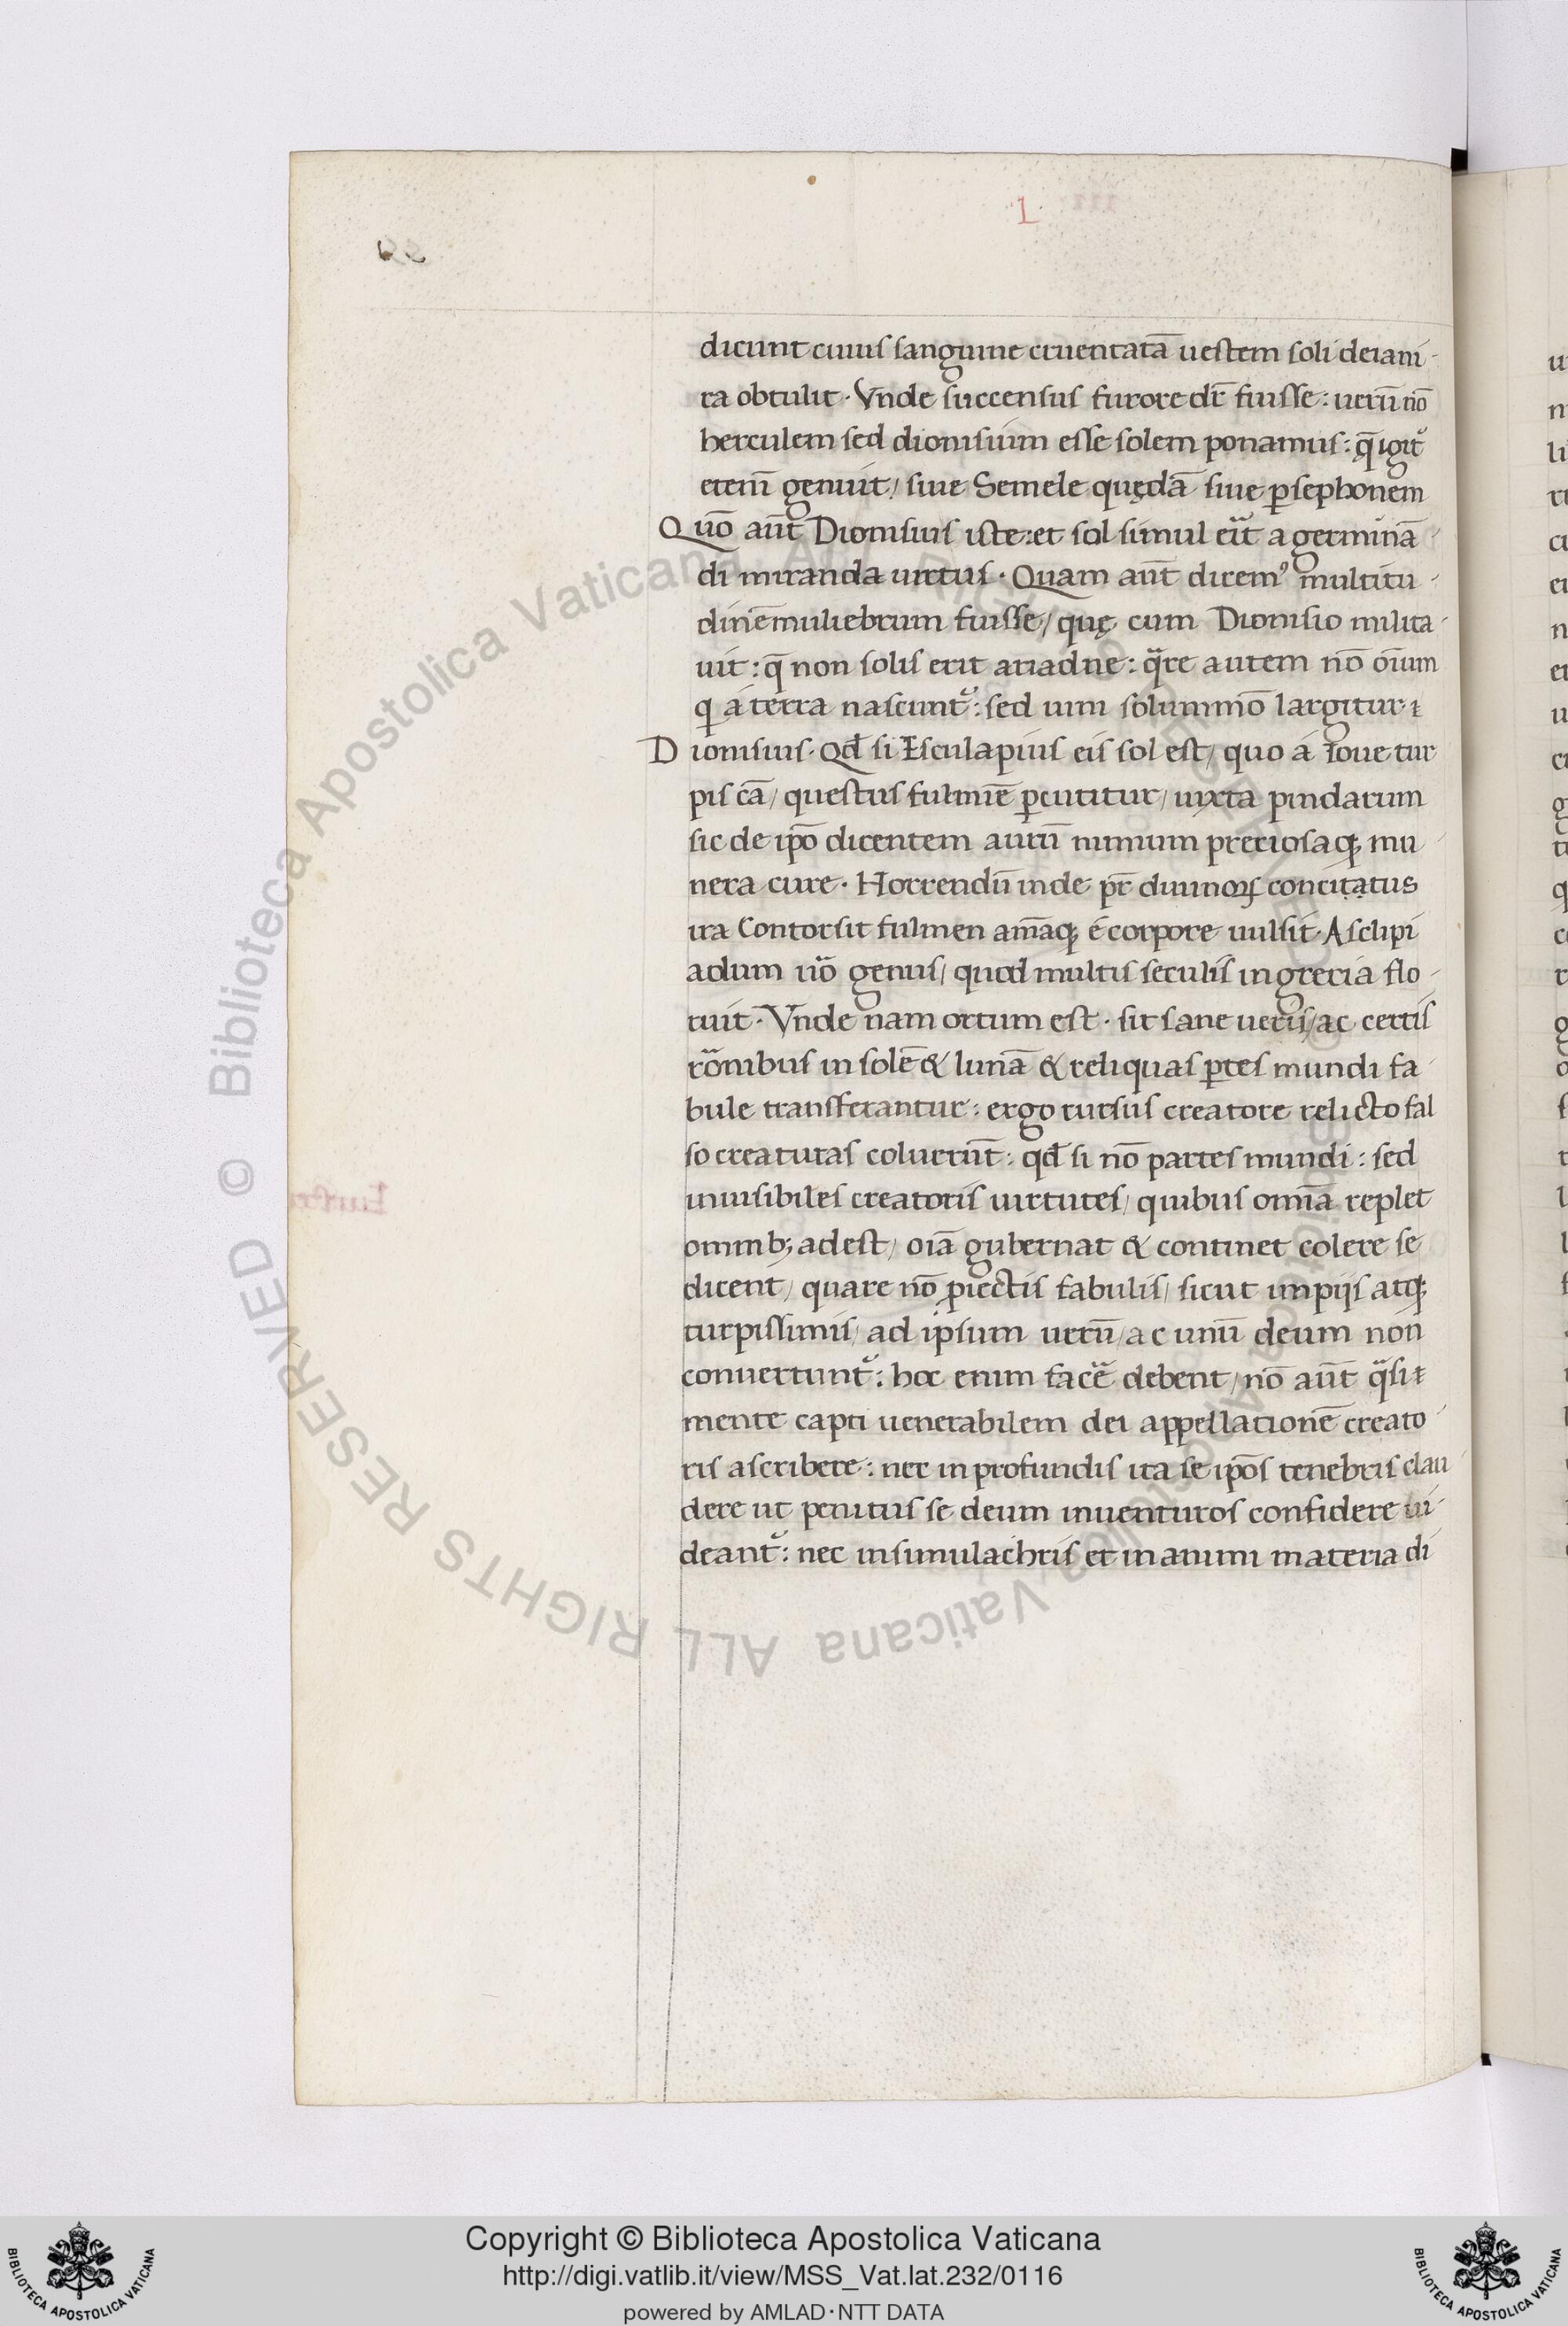 L
dicunt cuius sanguine cruentatā uestem soli deiani-
ra obtulit · Vnde succensus furore dr̄ fuisse : uerū nō
herculem sed dionisium esse solem ponamus : q̄ igit᷑
eteni᷑ genuit / siue Semele quędā siue ꝑsephonem
Quō aūt Dionisius iste : et sol simul erit a germinā-
di miranda uirtus · Quam aūt dicemꝰ multitu-
dinē muliebrum fuisse / quę cum Dionisio milita-
uit : q̄ non solis erit ariadne : q̄re autem nō oīum
q̄ á terra nascunt᷑ : sed uini solummō largitur ē
Dionisius · Qd̄ si Esculapius eis sol est / quo á Ioue tur
pis cā / questus fulmīe ꝑcutitur / iuxta pindarum
sic de ipō dicentem aurū nimium preciosaq; mu-
nera cure · Horrendū inde pr̄ diuinoꝝ concitatus
ira Contorsit fulmen am̄aq; é corpore uulsit · Asclipi
adum uō genus / quod multis seculis in grecia flo-
ruit · Vnde nam ortum est · sit sane ueris / ac certis
rōnibus in solē & lunā & reliquas ꝑtes mundi fa-
bule transferantur : ergo rursus creatore relicto fal
so creaturas coluerūt : qd̄ si nō partes mundi : sed
inuisibiles creatoris uirtutes / quibus omīa replet
omnib; adest / oīa gubernat & continet colere se
dicent / quare nō ꝓiectis fabulis / sicut impijs atq;
turpissimis / ad ipsum uerū / ac unū deum non
conuertunt᷑ : hoc enim facē debent / nō aūt q̄si ē
mente capti uenerabilem dei appellationē creato-
ris ascribere : nec in profundis ita se ipōs tenebris clau
dere ut penitus se deum inuenturos confidere ui-
deant᷑ : nec in simulachris et in animi materia di
Copyright © Biblioteca Apostolica Vaticana
http://digi.vatlib.it/view/MSS_Vat.lat.232/0116
powered by AMLAD·NTT DATA
© Biblioteca Apostolica Vaticana ALL RIGHTS RESERVED
BIBLIOTECA APOSTOLICA VATICANA
BIBLIOTECA APOSTOLICA VATICANA